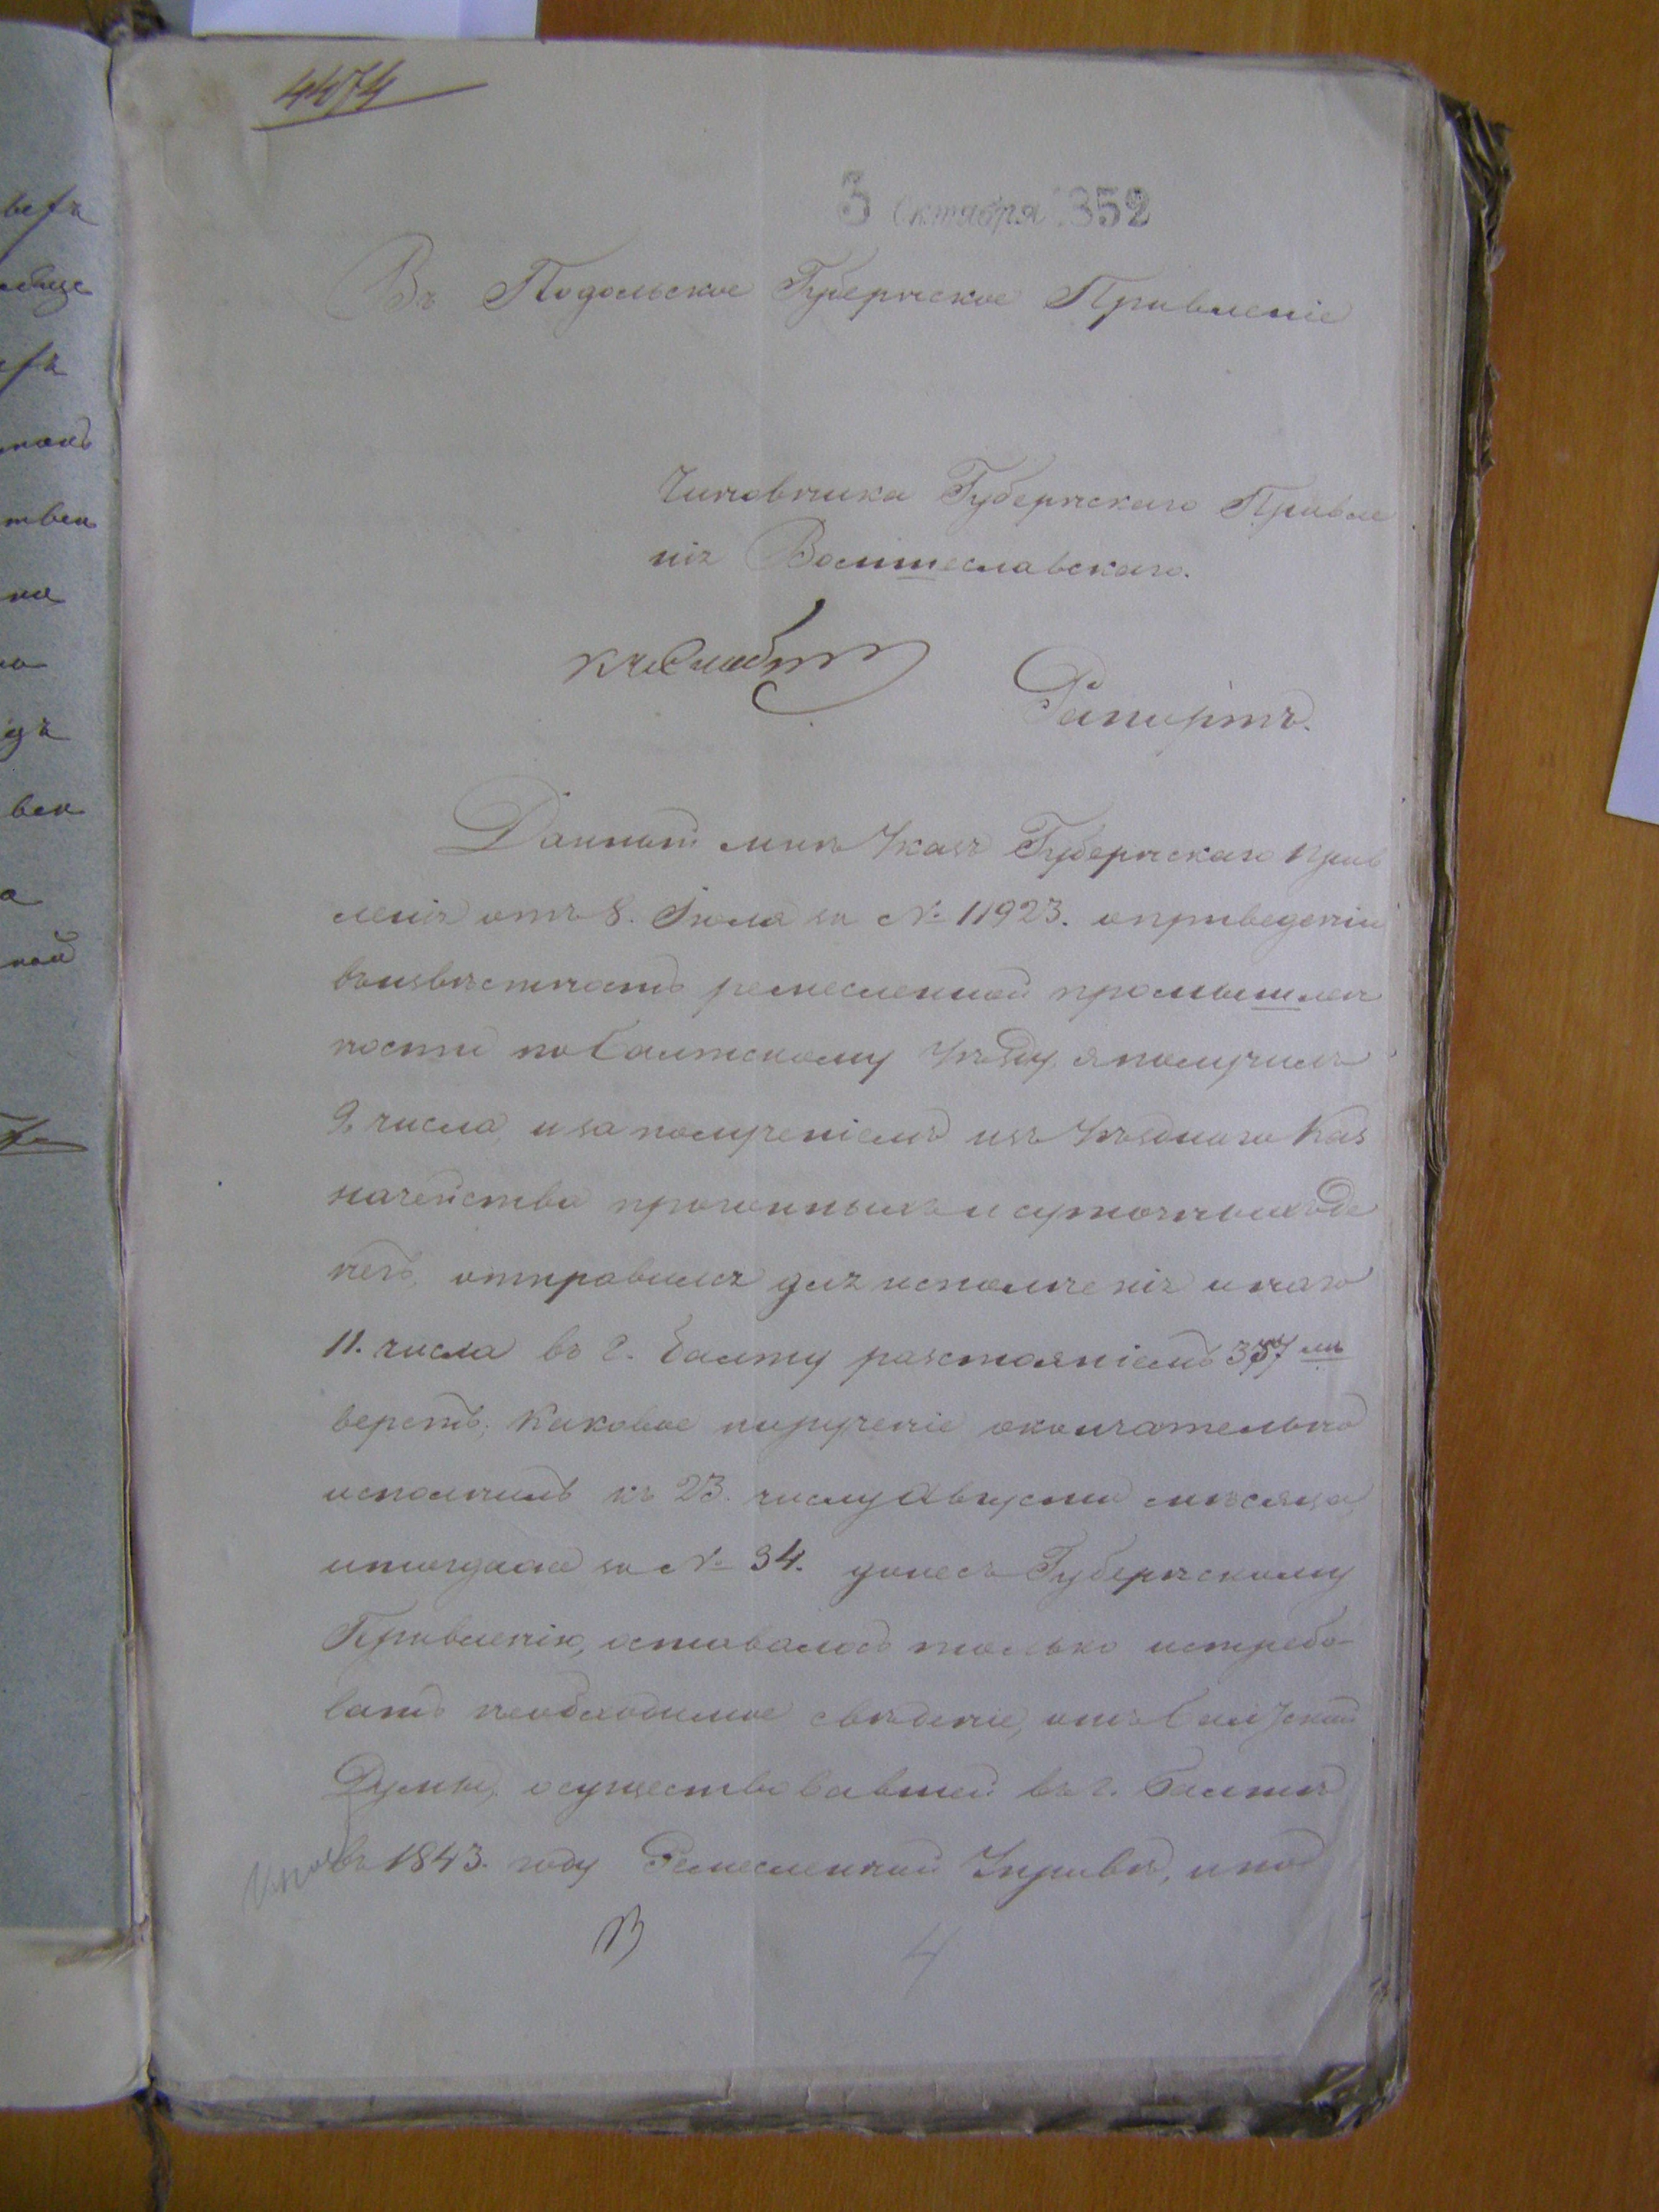 4474
3 Октября 1852
Въ Подольское Губернское Правленіе
Чиновника Губернскаго Правле
нія
Рапортъ.
Данный мнѣ Указъ Губернскаго Прав
ленія отъ 8. Іюля за № 11923. о приведеніи
въ извѣстность ремесленной промышлен
ности по Балтскому Уѣзду, я получилъ
9. числа, и за полученіемъ изъ Уѣзднаго Каз
начейства прогонныхъ и суточныхъ де
негъ, отправился для исполненія онаго
11. числа въ г. Балту разстояніемъ 357 ми
верстъ; каковое порученіе окончательно
исполнилъ къ 23. числу Августа мѣсяца,
и тогда же за № 34. донесъ Губернскому
Правленію, оставалось только истребо-
вать необходимое свѣденіе, отъ Балтской
Думы, о существовавшей въ г. Балтѣ
въ 1843. году Ремесленной Управѣ, и по
4